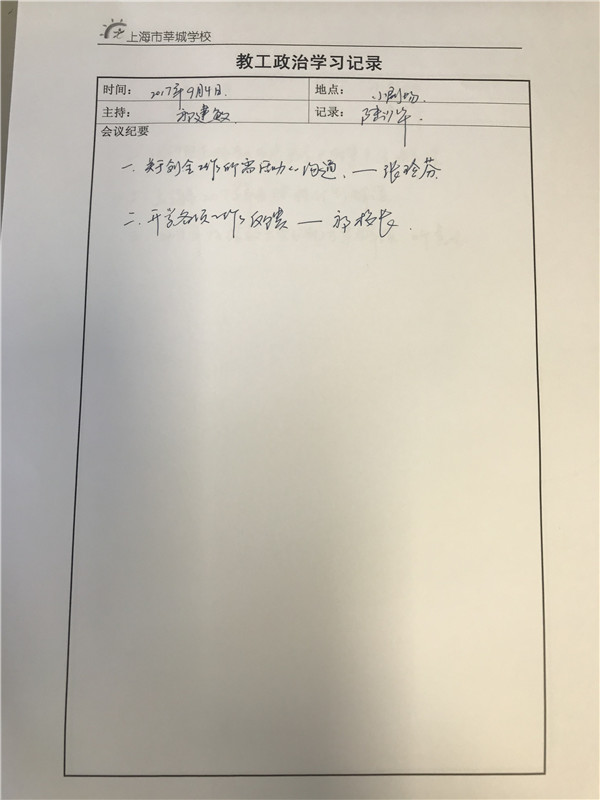 上海市莘城学校
教工政治学习记录
时间： 2017年9月4日. 地点： 小剧场.
主持： 郭建敏 记录：
会议纪要
一、关于创全工作所需活动沟通. —张玲芬
二. 开学各项工作反馈—郭校长.